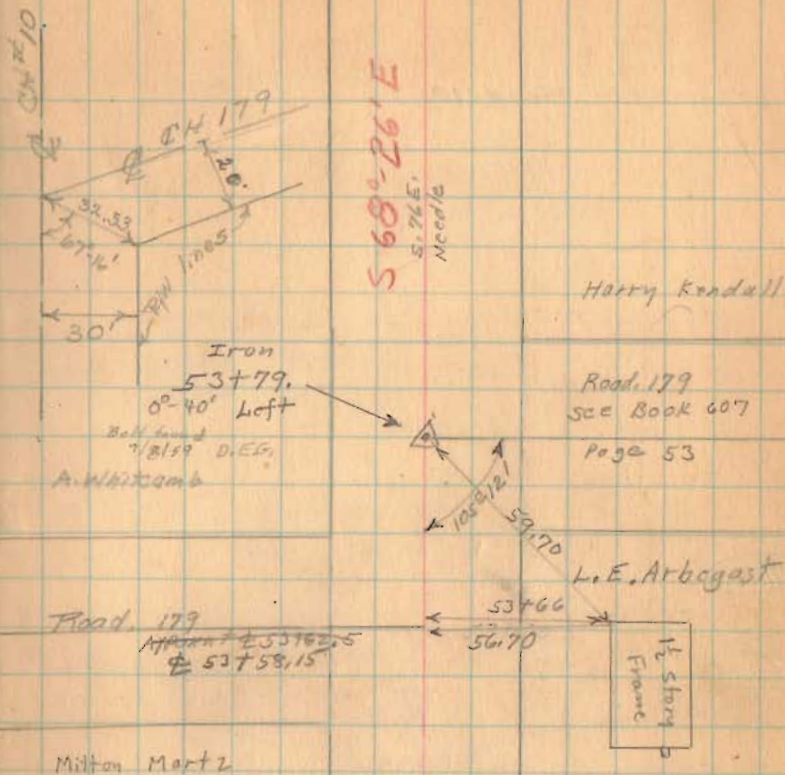 ℄ CH #10
℄ CH 179
20'
32.53
67°-16'
R/W lines
30'
S 68°-26' E
S. 76 E.
Needle
Harry Kendall
Iron
53+79.
0°-40' Left
Bolt found
7/8/59 D.E.G.
A. Whitcomb
Road. 179
see Book 607
Page 53
105°12'
59.70
L. E. Arbegast
53+66
56.70
Road. 179
℄ 53+62.5
℄ 53+58.15
1½ Story
Frame
Milton Martz